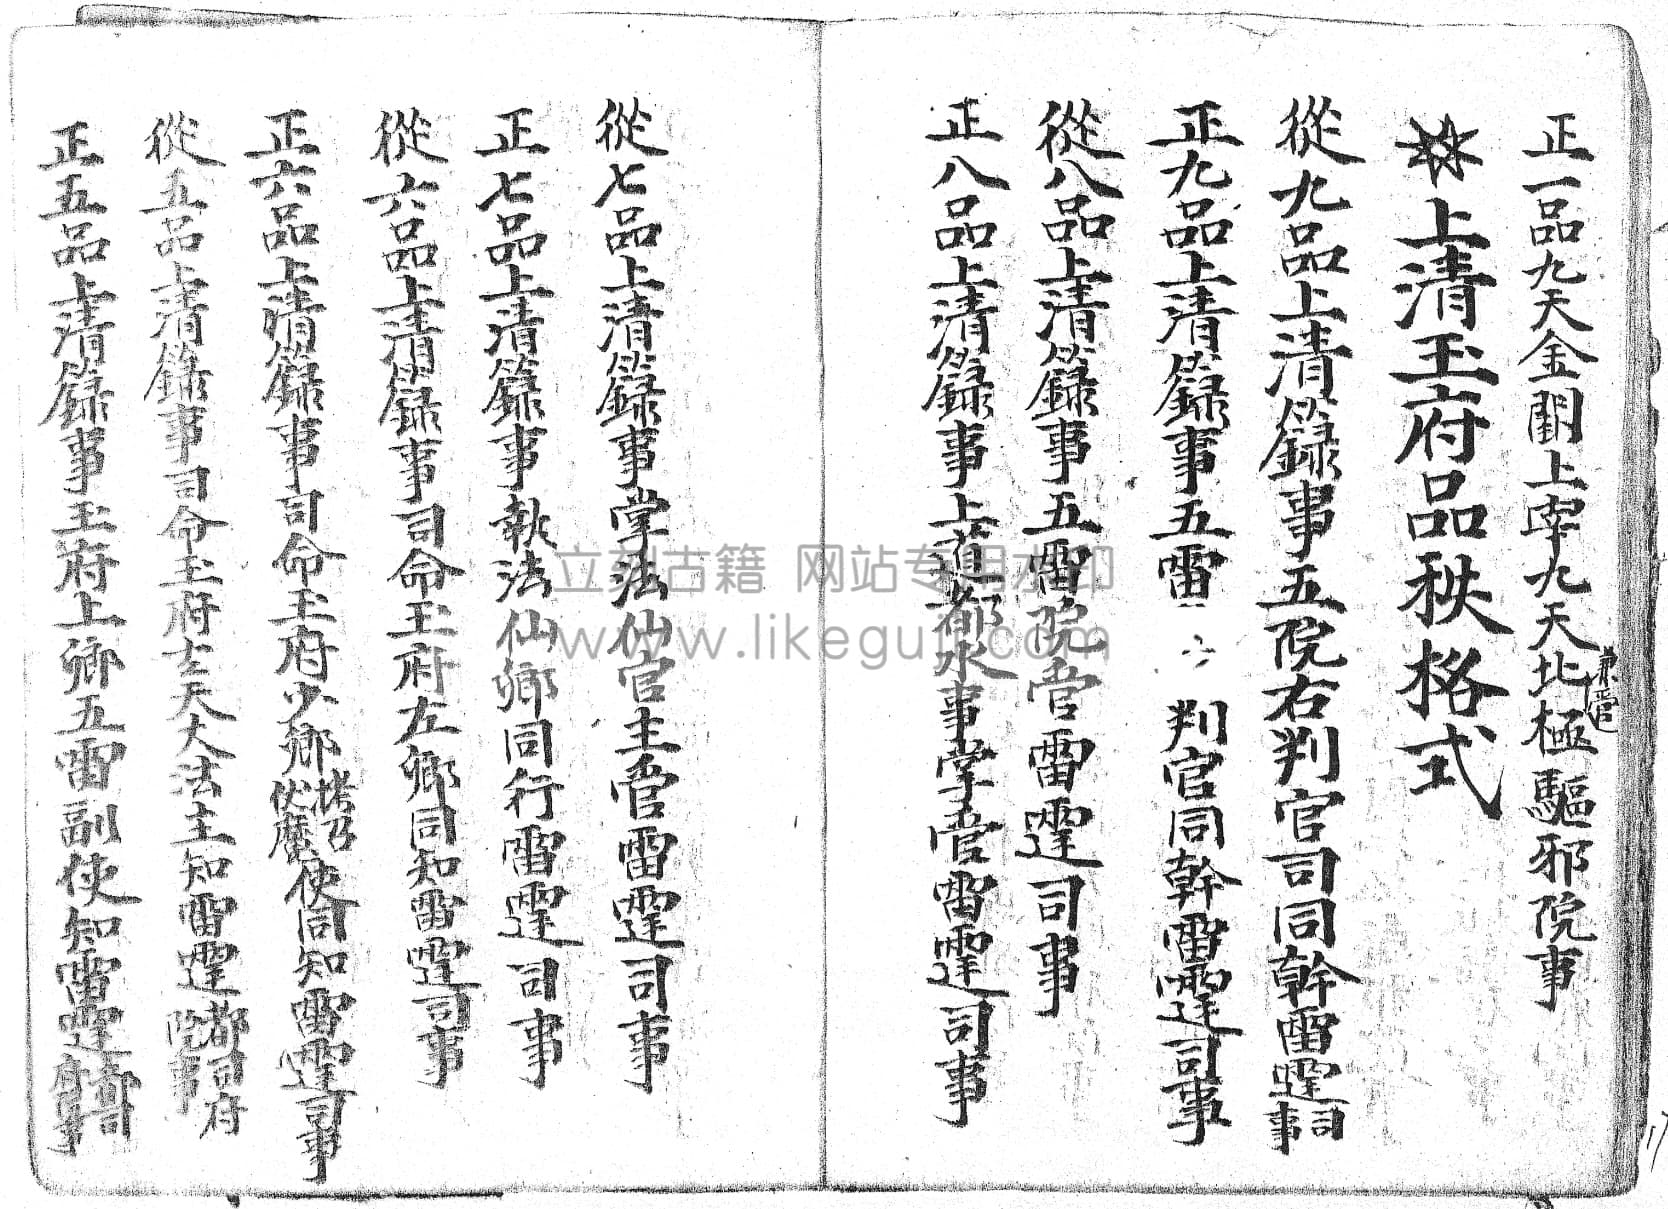 正一品九天金闕上宰九天北極驅邪院事
兼管
上清玉府品秩格式
從九品上清籙事五院右判官司同幹雷霆司事
正九品上清籙事五雷 判官同幹雷霆司事
從八品上清籙事五雷院管雷霆司事
正八品上清籙事上道都水事掌管雷霆司事
從七品上清籙事掌法仙官主管雷霆司事
正七品上清籙事執法仙卿同行雷霆司事
從六品上清籙事司命玉府左卿同知雷霆司事
正六品上清籙事司命玉府少卿伏魔使同知雷霆司事
從五品上清籙事司命玉府玄天大法主知雷霆都司府院事
正五品上清籙事玉府上卿五雷副使知雷霆都司府事
立刻古籍 网站专用水印
www.likeguji.com
17